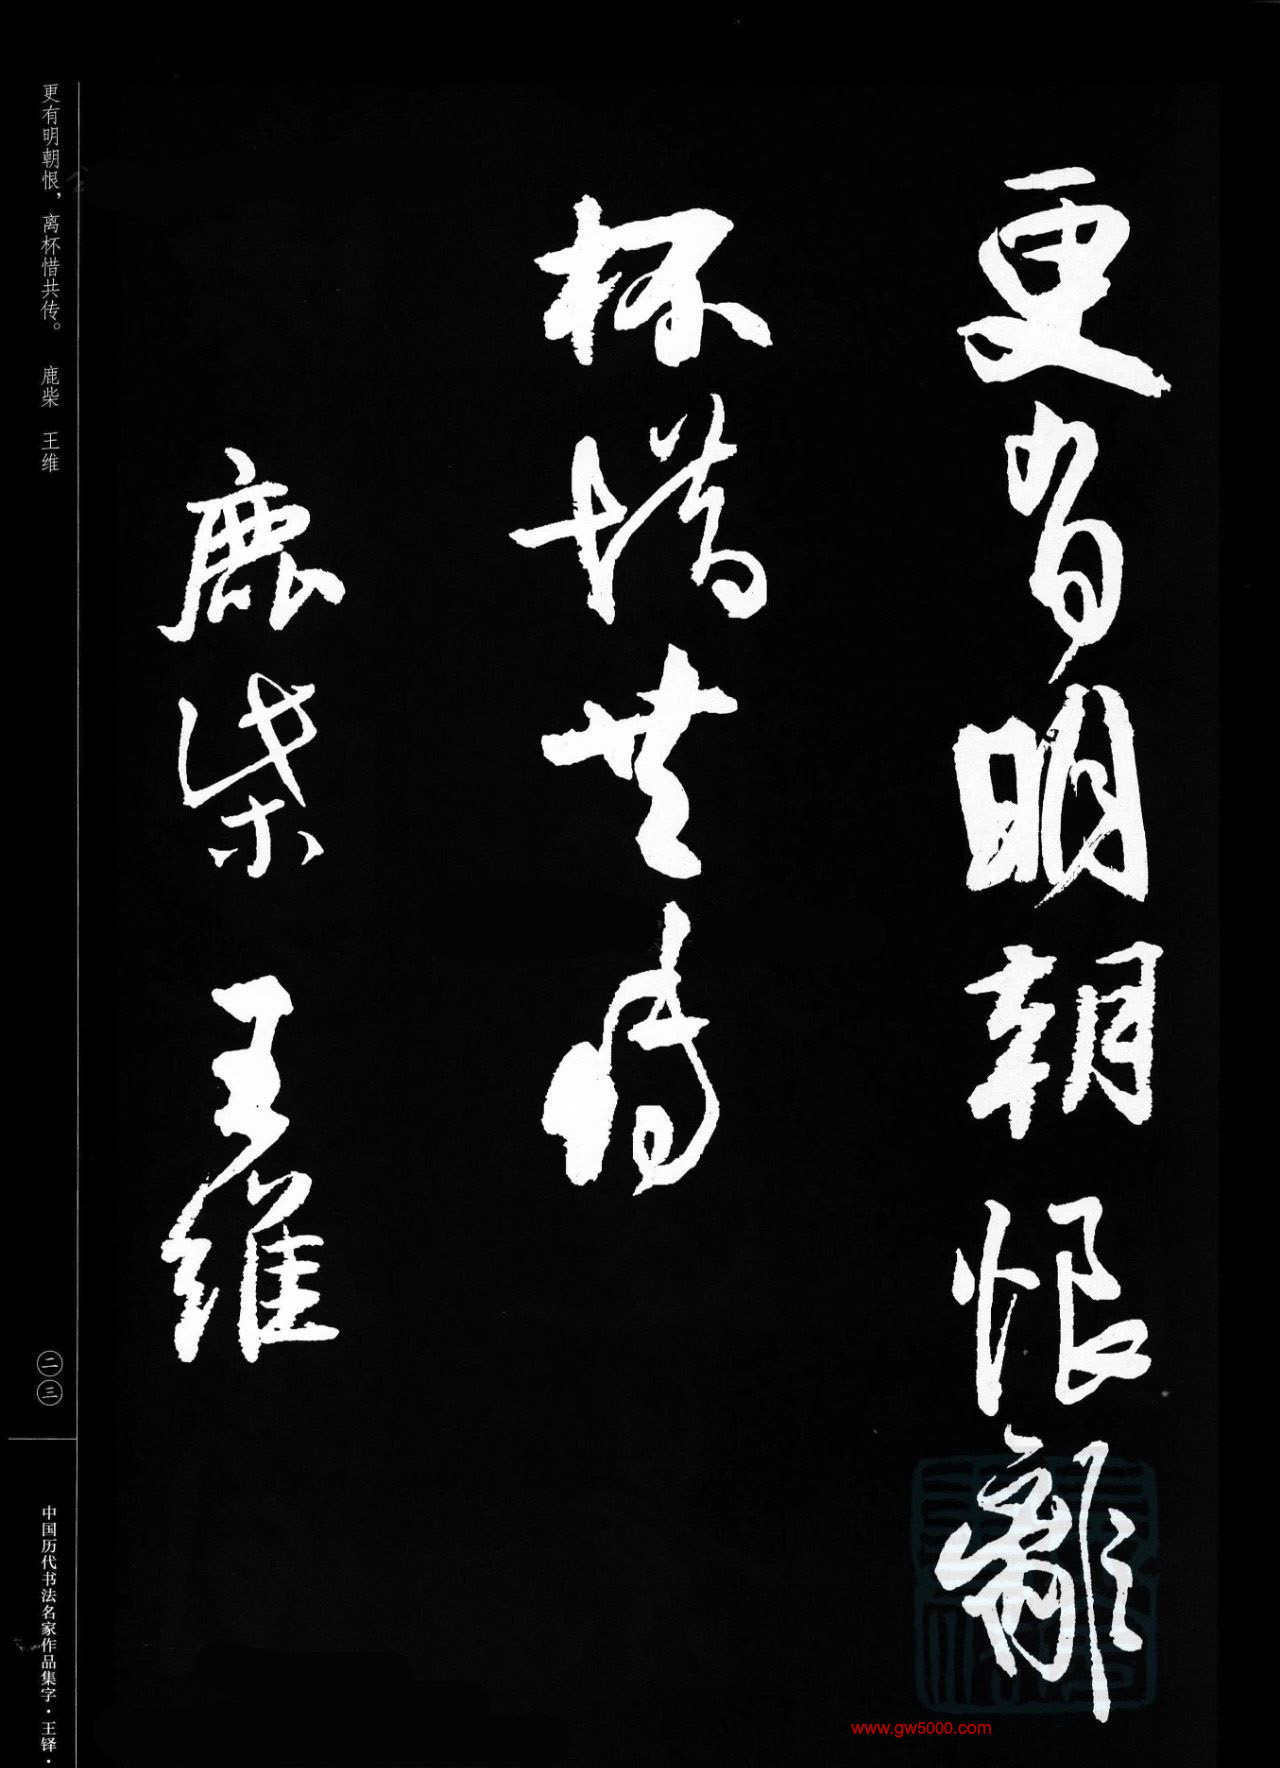 更有明朝恨離
杯惜共傳
鹿柴 王維
更有明朝恨，离杯惜共传。 鹿柴 王维
二三
中国历代书法名家作品集字·王铎·
www.gw5000.com